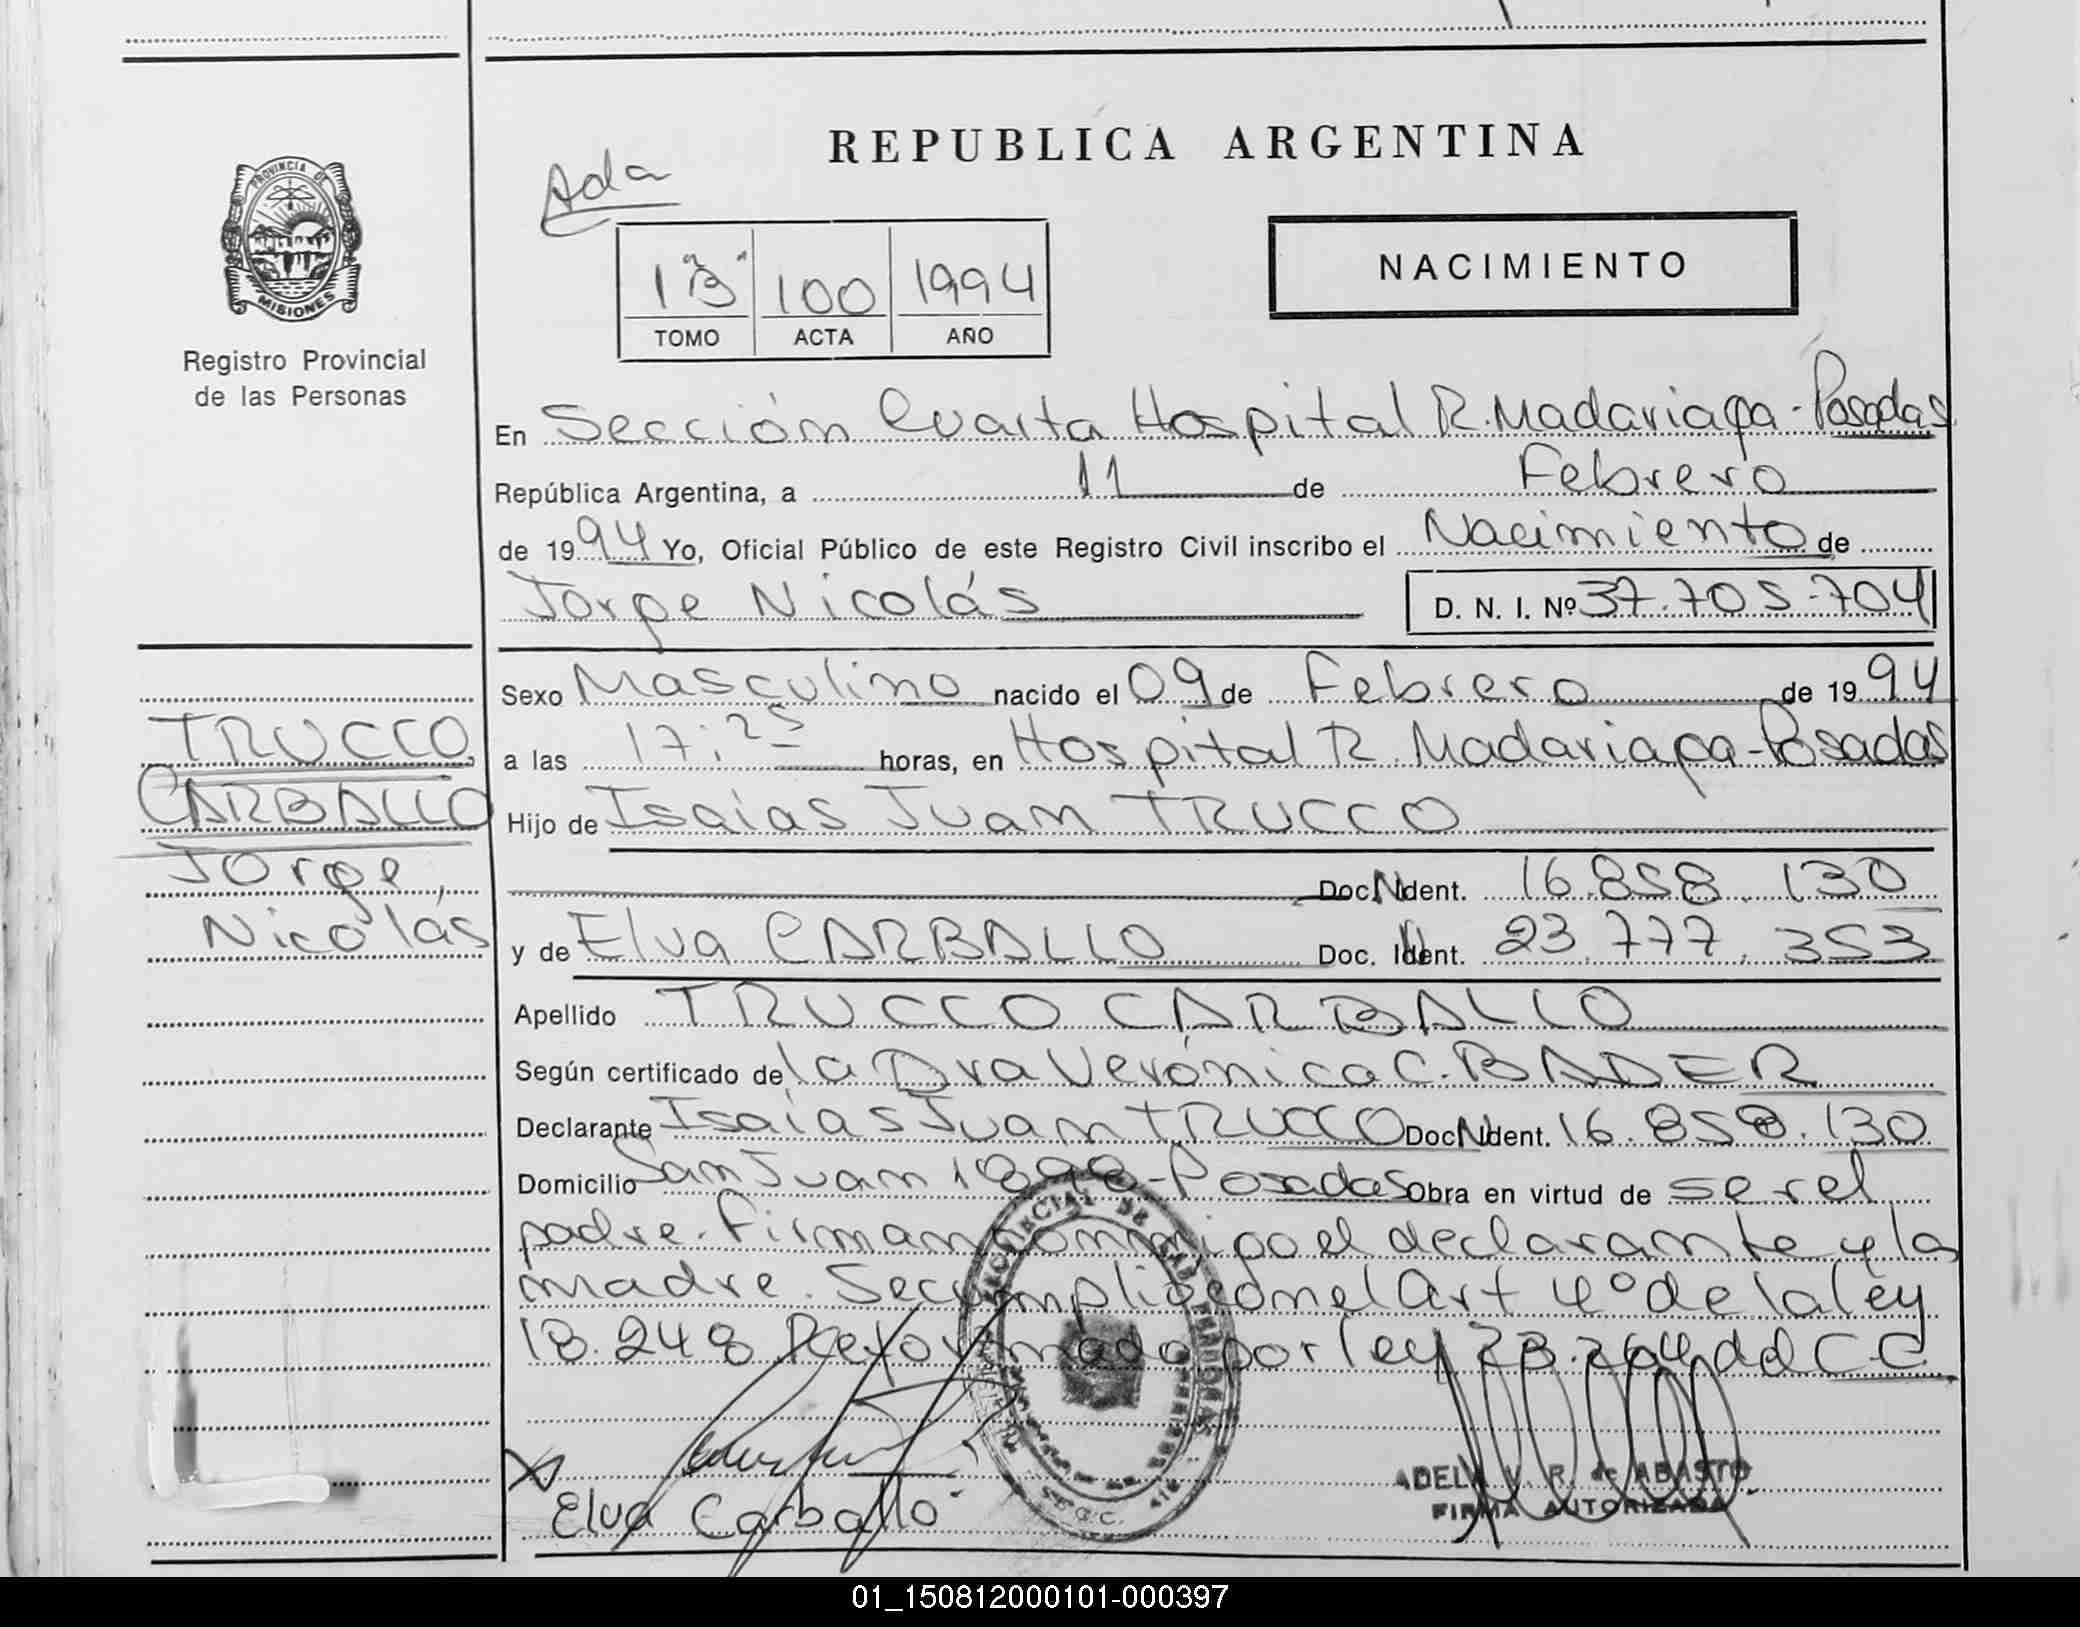 REPUBLICA ARGENTINA
Ada
PROVINCIA DE
MISIONES
Registro Provincial
de las Personas
1 "B" 100 1994
TOMO ACTA AÑO
NACIMIENTO
En Sección Cuarta Hospital R. Madariaga - Posadas
República Argentina, a 11 de Febrero
de 1994 Yo, Oficial Público de este Registro Civil inscribo el Nacimiento de
Jorge Nicolás D. N. I. Nº 37.705.704
TRUCCO
CARBALLO
Jorge,
Nicolás
Sexo Masculino nacido el 09 de Febrero de 1994
a las 17:25 horas, en Hospital R. Madariaga - Posadas
Hijo de Isaías Juan TRUCCO
Doc. Ident. 16.858.130
y de Elva CARBALLO Doc. Ident. 23.777.353
Apellido TRUCCO CARBALLO
Según certificado de la Dra Verónica C. BADER
Declarante Isaías Juan TRUCCO Doc. Ident. 16.858.130
Domicilio San Juan 1898 - Posadas Obra en virtud de ser el
padre. Firman conmigo el declarante y la
madre. Se cumplió con el Art 4º de la ley
18.248 Reformado por ley 23.264 del C.C.
Elva Carballo
ADELA V. R. de ABASTO
FIRMA AUTORIZADA
01_150812000101-000397